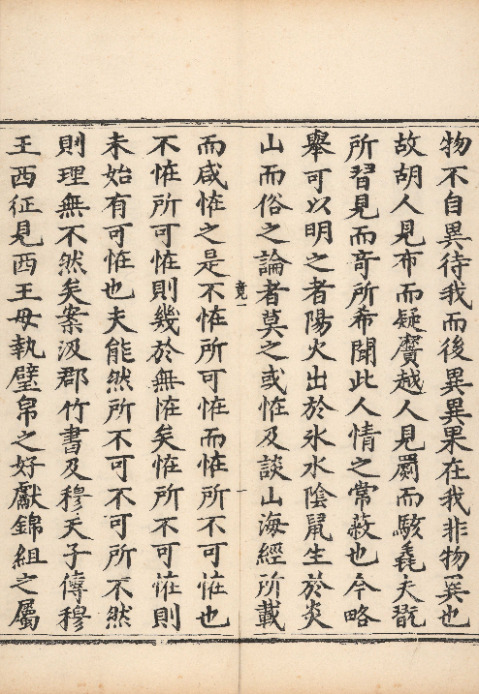 物不自異待我而後異異果在我非物異也
故胡人見布而疑黂越人見罽而駭毳夫翫
所習見而奇所希聞此人情之常蔽也今略
舉可以明之者陽火出於氷水陰鼠生於炎
山而俗之論者莫之或恠及談山海經所載
竟一
而咸恠之是不恠所可恠而恠所不可恠也
不恠所可恠則幾於無恠矣恠所不可恠則
未始有可恠也夫能然所不可不可所不然
則理無不然矣案汲郡竹書及穆天子傳穆
王西征見西王母執璧帛之好獻錦組之屬